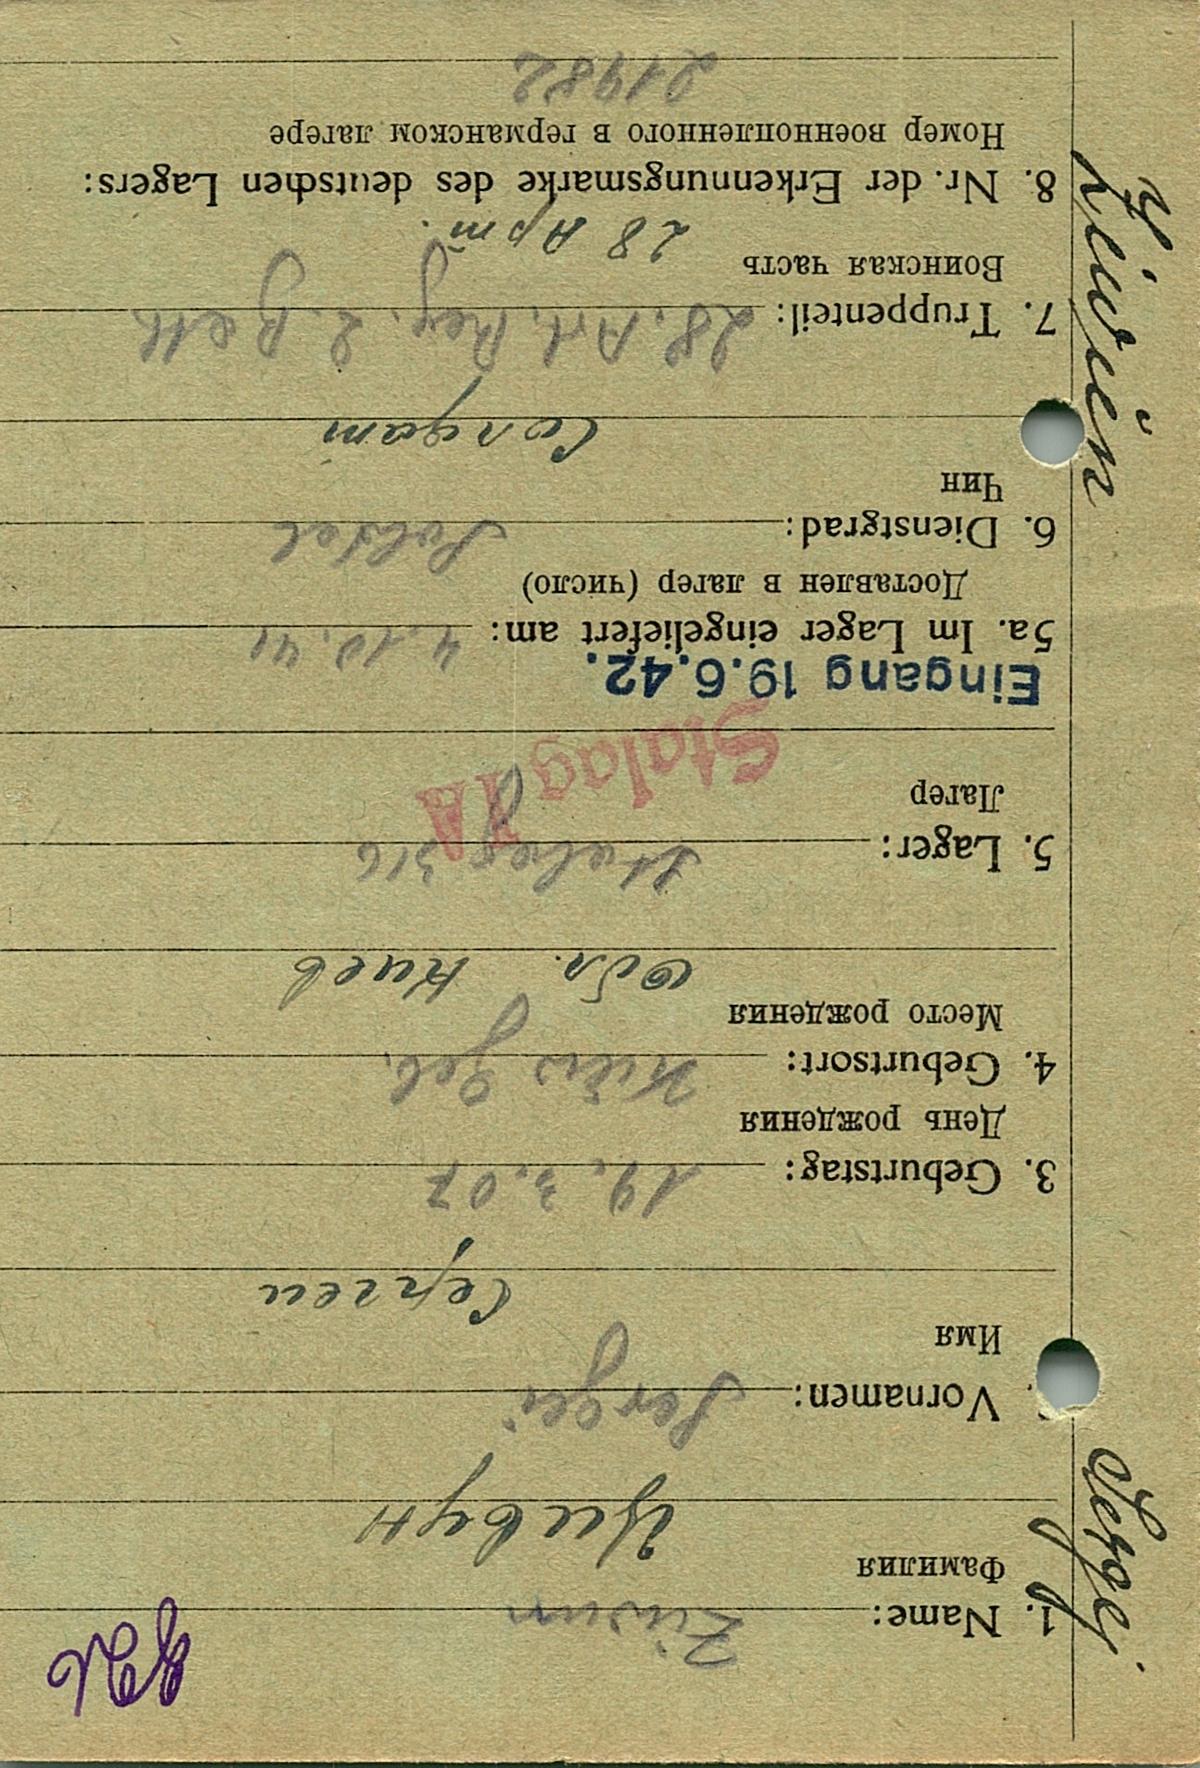 Sergej
1. Name: Ziwun
Фамилия
Цивун
Vornamen: Sergei
Имя
Сергеи
3. Geburtstag: 19.3.07
День рождения
4. Geburtsort: Kiew Geb.
Место рождения
Обл. Киев
5. Lager: Stalag 316
Лагер
Stalag IA
Eingang 19.6.42.
5a. Im Lager eingeliefert am: 4.10.41
Доставлен в лагер (число)
6. Dienstgrad: Soldat
Чин
Солдат
7. Truppenteil: 28. Art. Reg. 2. Batt.
Воинская часть
28 Арт.
8. Nr. der Erkennungsmarke des deutschen Lagers:
Номер военнопленного в германском лагере
21982